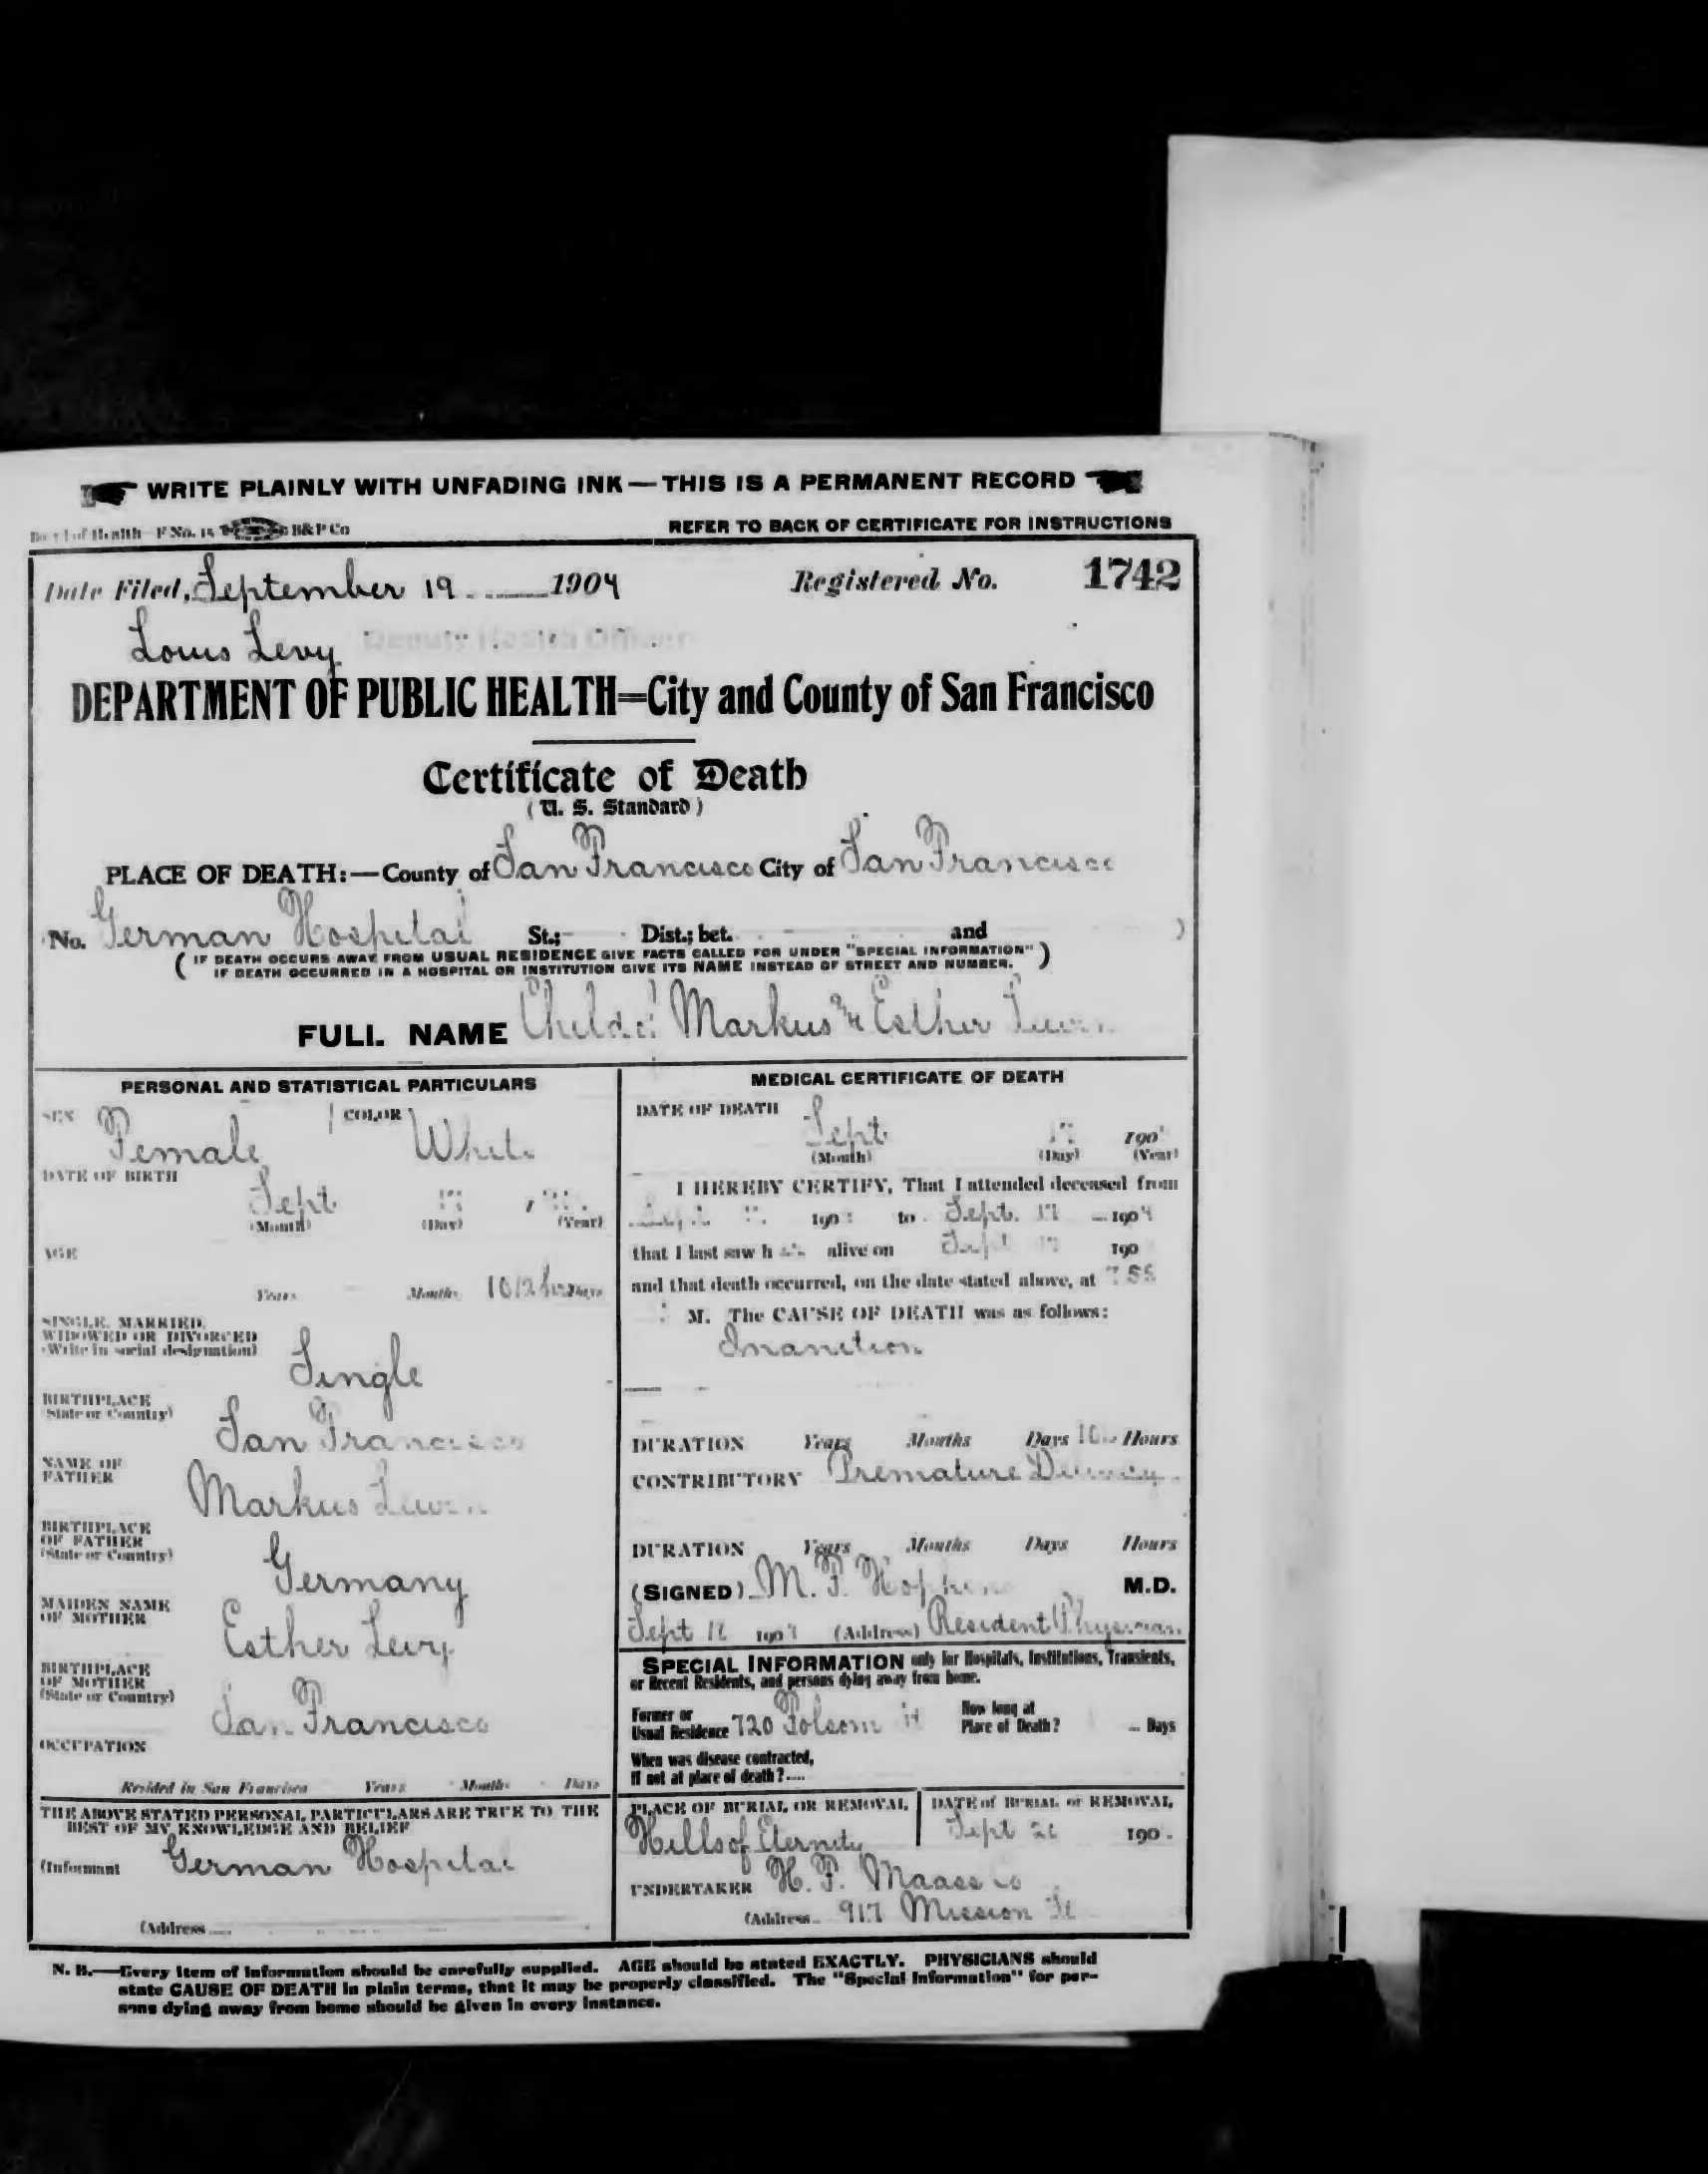 WRITE PLAINLY WITH UNFADING INK — THIS IS A PERMANENT RECORD
of Health F No. 15 B&P Co REFER TO BACK OF CERTIFICATE FOR INSTRUCTIONS
Date Filed, September 19 1904 Registered No. 1742
Louis Levy Deputy Health Officer
DEPARTMENT OF PUBLIC HEALTH=City and County of San Francisco
Certificate of Death
(U. S. Standard)
PLACE OF DEATH:—County of San Francisco City of San Francisco
No. German Hospital St.; Dist.; bet. and )
( IF DEATH OCCURS AWAY FROM USUAL RESIDENCE GIVE FACTS CALLED FOR UNDER "SPECIAL INFORMATION" )
IF DEATH OCCURRED IN A HOSPITAL OR INSTITUTION GIVE ITS NAME INSTEAD OF STREET AND NUMBER.
FULL NAME Child of Markus & Esther
PERSONAL AND STATISTICAL PARTICULARS
SEX Female COLOR White
DATE OF BIRTH
Sept
(Month) (Day) (Year)
AGE
Years Months 10 1/2 hrs Days
SINGLE, MARRIED,
WIDOWED OR DIVORCED
(Write in social designation)
Single
BIRTHPLACE
(State or Country)
San Francisco
NAME OF
FATHER
Markus
BIRTHPLACE
OF FATHER
(State or Country)
Germany
MAIDEN NAME
OF MOTHER
Esther Levy
BIRTHPLACE
OF MOTHER
(State or Country)
San Francisco
OCCUPATION
Resided in San Francisco Years Months Days
THE ABOVE STATED PERSONAL PARTICULARS ARE TRUE TO THE
BEST OF MY KNOWLEDGE AND BELIEF
(Informant German Hospital
(Address
MEDICAL CERTIFICATE OF DEATH
DATE OF DEATH
Sept 17 190
(Month) (Day) (Year)
I HEREBY CERTIFY, That I attended deceased from
Sept 190 to Sept. 17 1904
that I last saw h alive on Sept 17 190
and that death occurred, on the date stated above, at 7 55
M. The CAUSE OF DEATH was as follows:
Inanition
DURATION Years Months Days 10 Hours
CONTRIBUTORY Premature
DURATION Years Months Days Hours
(SIGNED) M. F. Hopkins M.D.
Sept 1904 (Address) Resident Physician
SPECIAL INFORMATION only for Hospitals, Institutions, Transients,
or Recent Residents, and persons dying away from home.
Former or
Usual Residence 720 Folsom St How long at
Place of Death? Days
When was disease contracted,
If not at place of death?
PLACE OF BURIAL OR REMOVAL DATE of BURIAL or REMOVAL
Hills of Eternity Sept 190
UNDERTAKER H. F. Maass Co
(Address 917 Mission St
N. B.—Every item of information should be carefully supplied. AGE should be stated EXACTLY. PHYSICIANS should
state CAUSE OF DEATH in plain terms, that it may be properly classified. The "Special Information" for per-
sons dying away from home should be given in every instance.